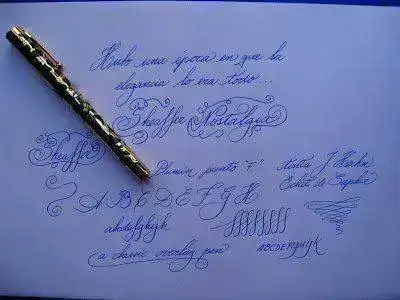 Hubo una época en que la
elegancia lo era todo...
Sheaffer Nostalgia
Sheaffer
Plumín punto "F"
tinta J. Herbin
Eclat de Saphir
A B C D E F G H
abcdefghijk
ABCDEFGHIJK
a classic overlay pen